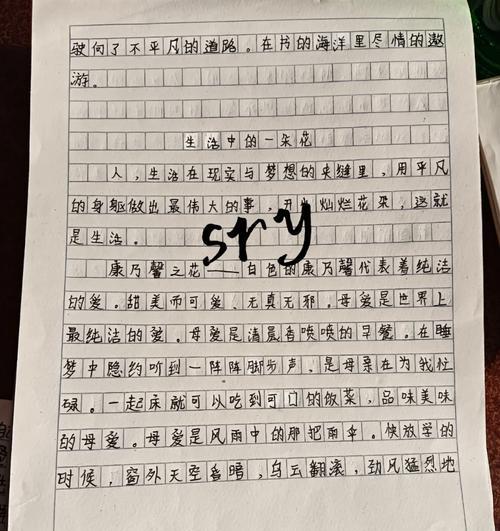 驶向了不平凡的道路。在书的海洋里尽情的遨
游。
生活中的一朵花
人，生活在现实与梦想的夹缝里，用平凡
的身躯做出最伟大的事，开出灿烂花朵，这就
是生活。
sry
康乃馨之花——白色的康乃馨代表着纯洁
的爱。甜美而可爱、无真无邪。母爱是世界上
最纯洁的爱。母爱是清晨香喷喷的早餐。在睡
梦中隐约听到一阵阵脚步声，是母亲在为我忙
碌。一起床就可以吃到可口的饭菜，品味美味
的母爱。母爱是风雨中的那把雨伞。快放学的
时候，窗外天空昏暗，乌云翻滚，劲风猛烈地